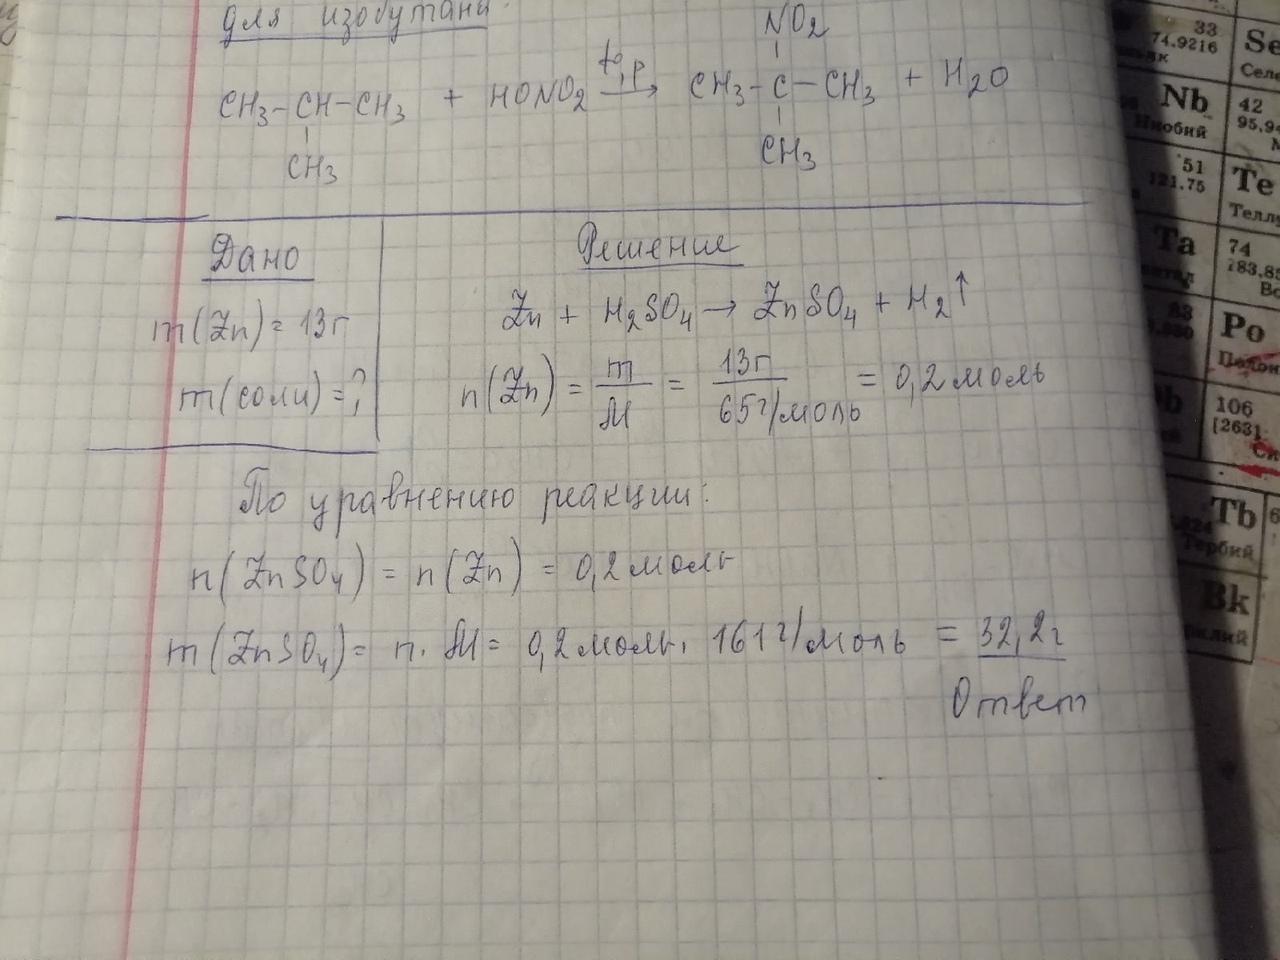 для изобутана
NO2
CH3-CH-CH3 + HONO2 t°,p → CH3-C-CH3 + H2O
CH3 CH3
Дано
m(Zn)=13г
m(соли)=?
Решение
Zn + H2SO4 → ZnSO4 + H2↑
n(Zn) = m/M = 13г/65г/моль = 0,2моль
По уравнению реакции:
n(ZnSO4) = n(Zn) = 0,2моль
m(ZnSO4)= n·M= 0,2моль·161г/моль = 32,2г
Ответ
33
74.9216
Se
Nb
Ниобий
42
51
121.75
Te
Ta
74
Po
106
[263]
Tb
Тербий
Bk